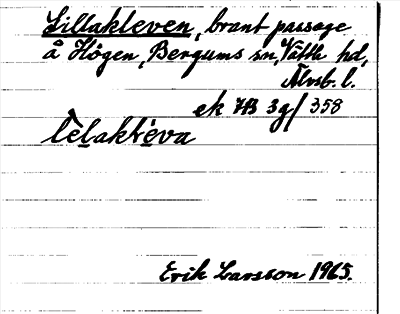 Lillakleven, brant passage
å Högen, Bergums sn, Vättle hd,
Älvsb. l.
ek 7B 3g/358
lèlaktéva
Erik Larsson 1965.